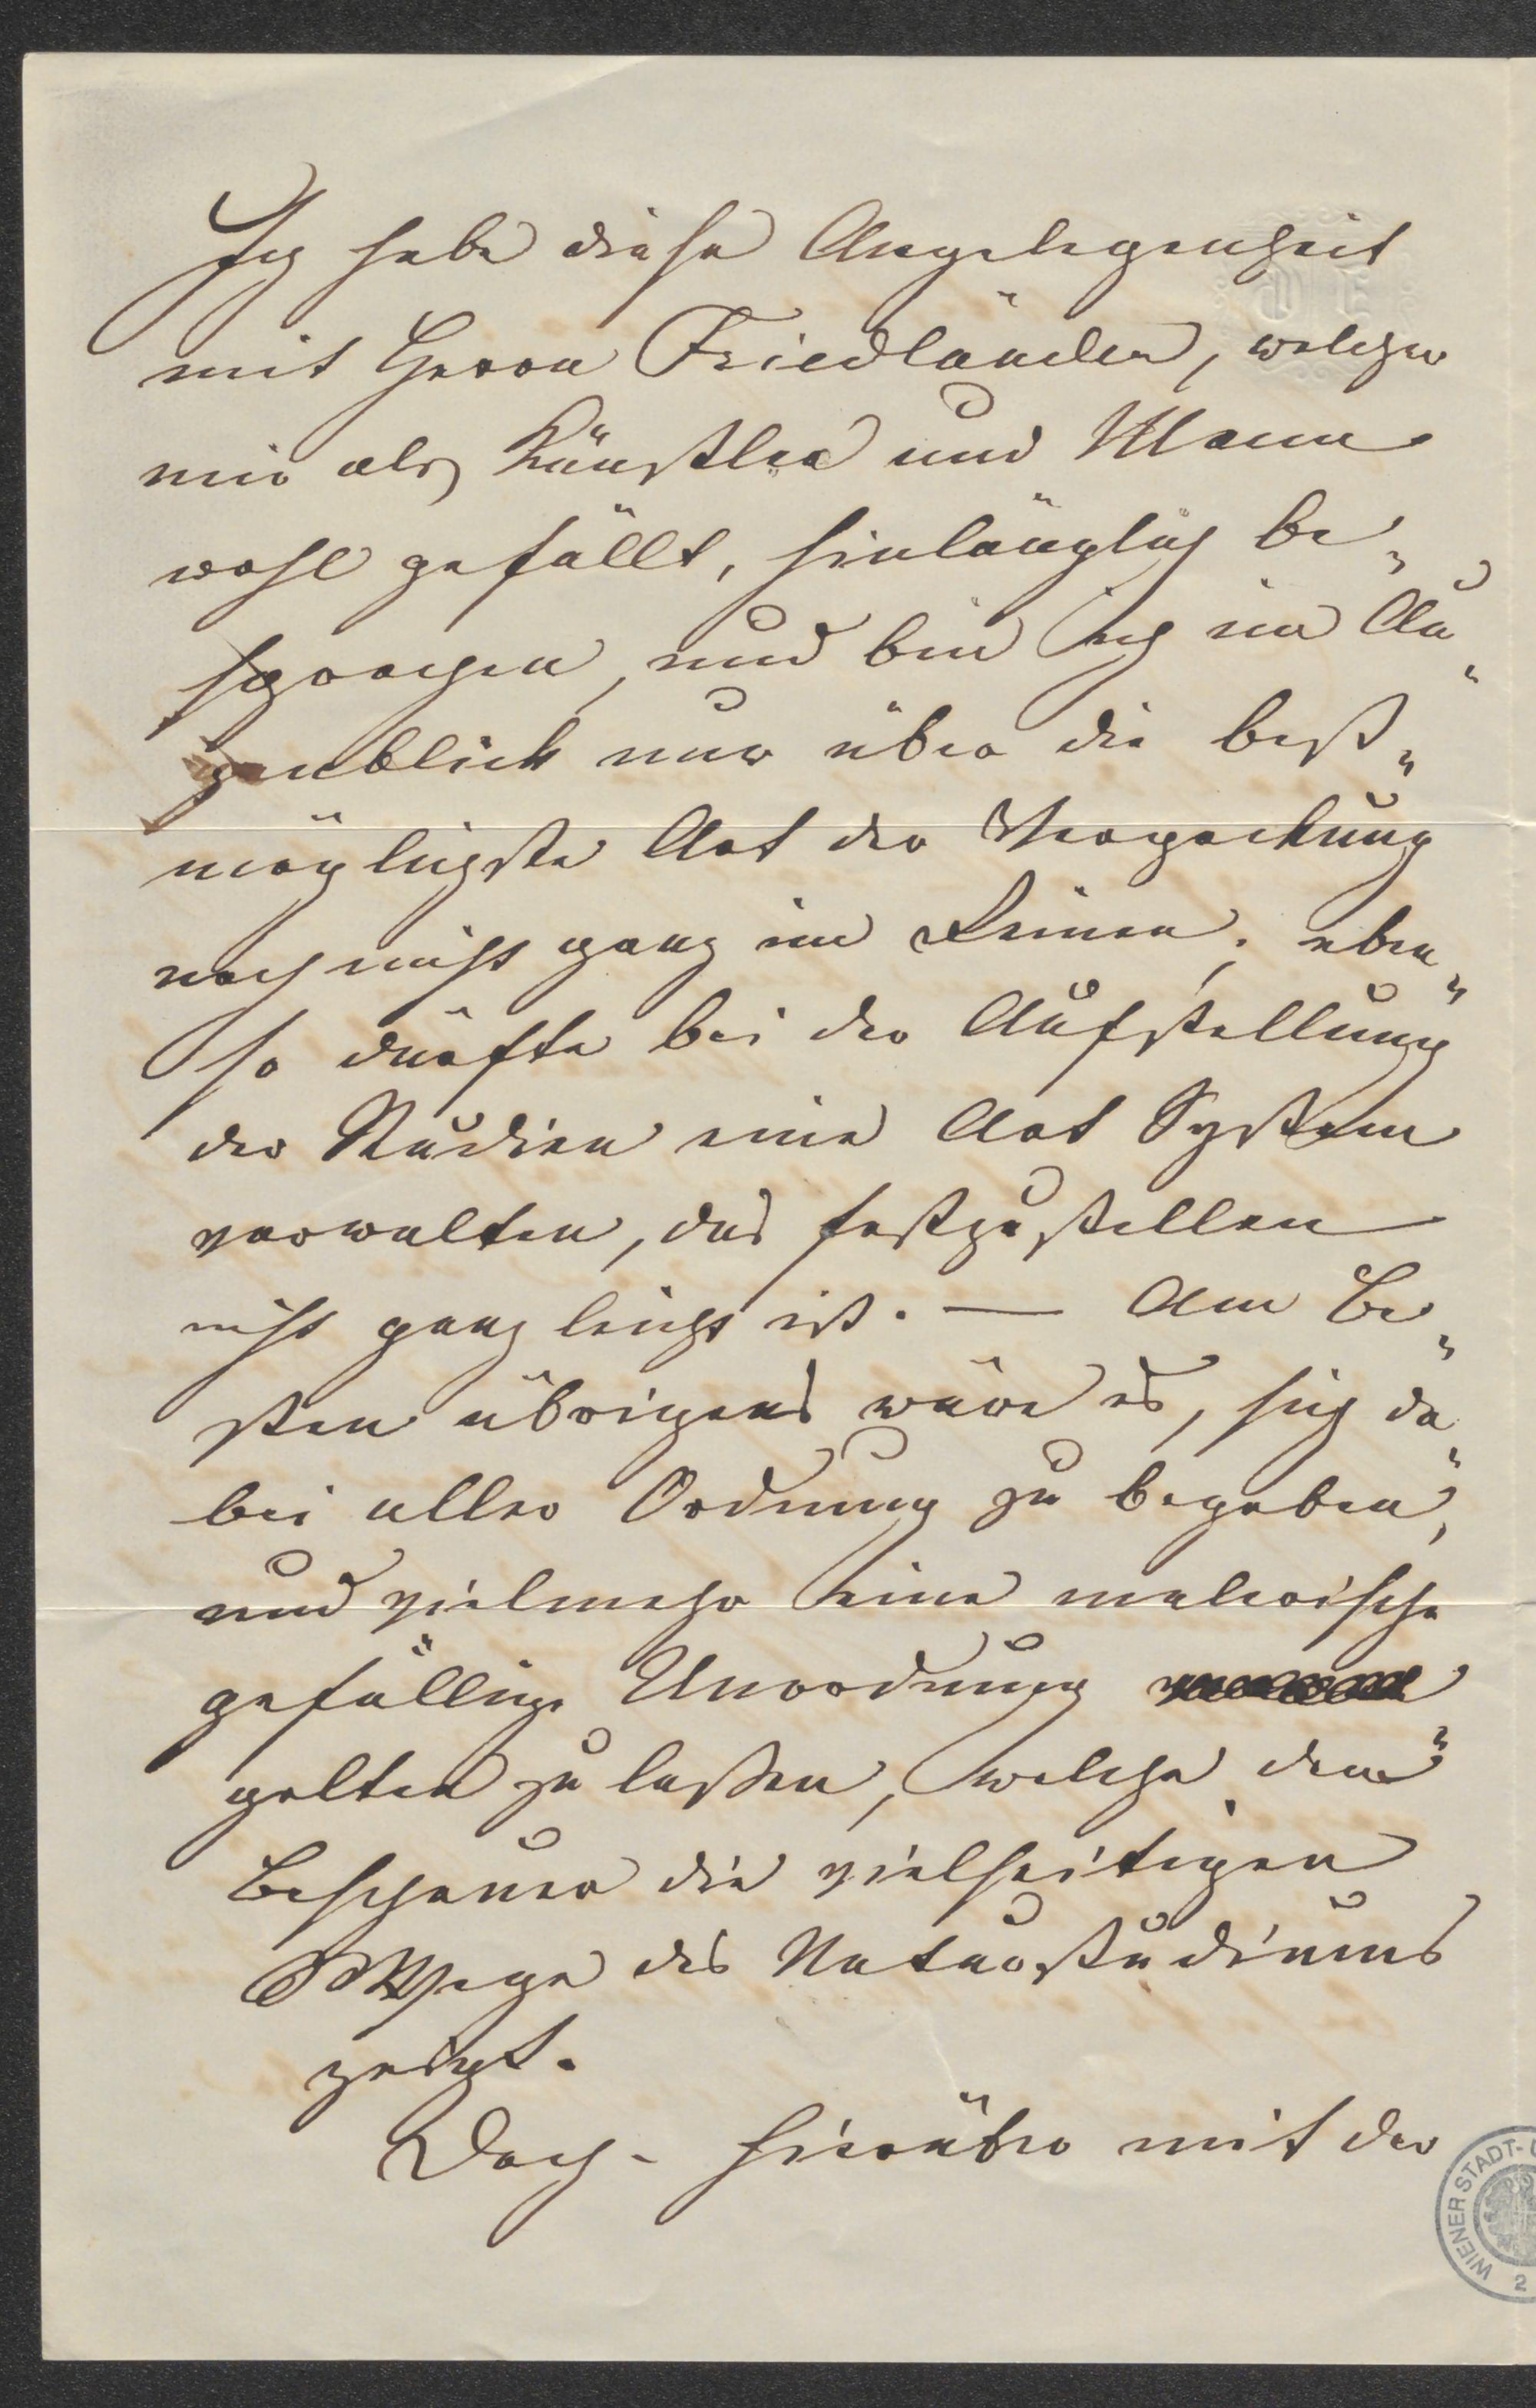 Ich habe diese Angelegenheit
mit Herrn Friedländer, welcher
mir als Künstler und Mann
wohl gefällt, hinlänglich be-
sprochen, und bin ich im Au-
genblick nur über die best-
möglichste Art der Verpackung
noch nicht ganz im Reinen; eben-
so dürfte bei der Aufstellung
der Studien eine Art System
vorwalten, das festzustellen
nicht ganz leicht ist. — Am Be-
sten übrigens wäre es, sich da-
bei aller Ordnung zu begeben,
und vielmehr eine malerische
gefällige Unordnung
gelten zu lassen, welche dem
Beschauer die vielseitigen
Wege des Naturstudiums
zeigt.
Doch - hierüber mit der
WIENER STADT-
2